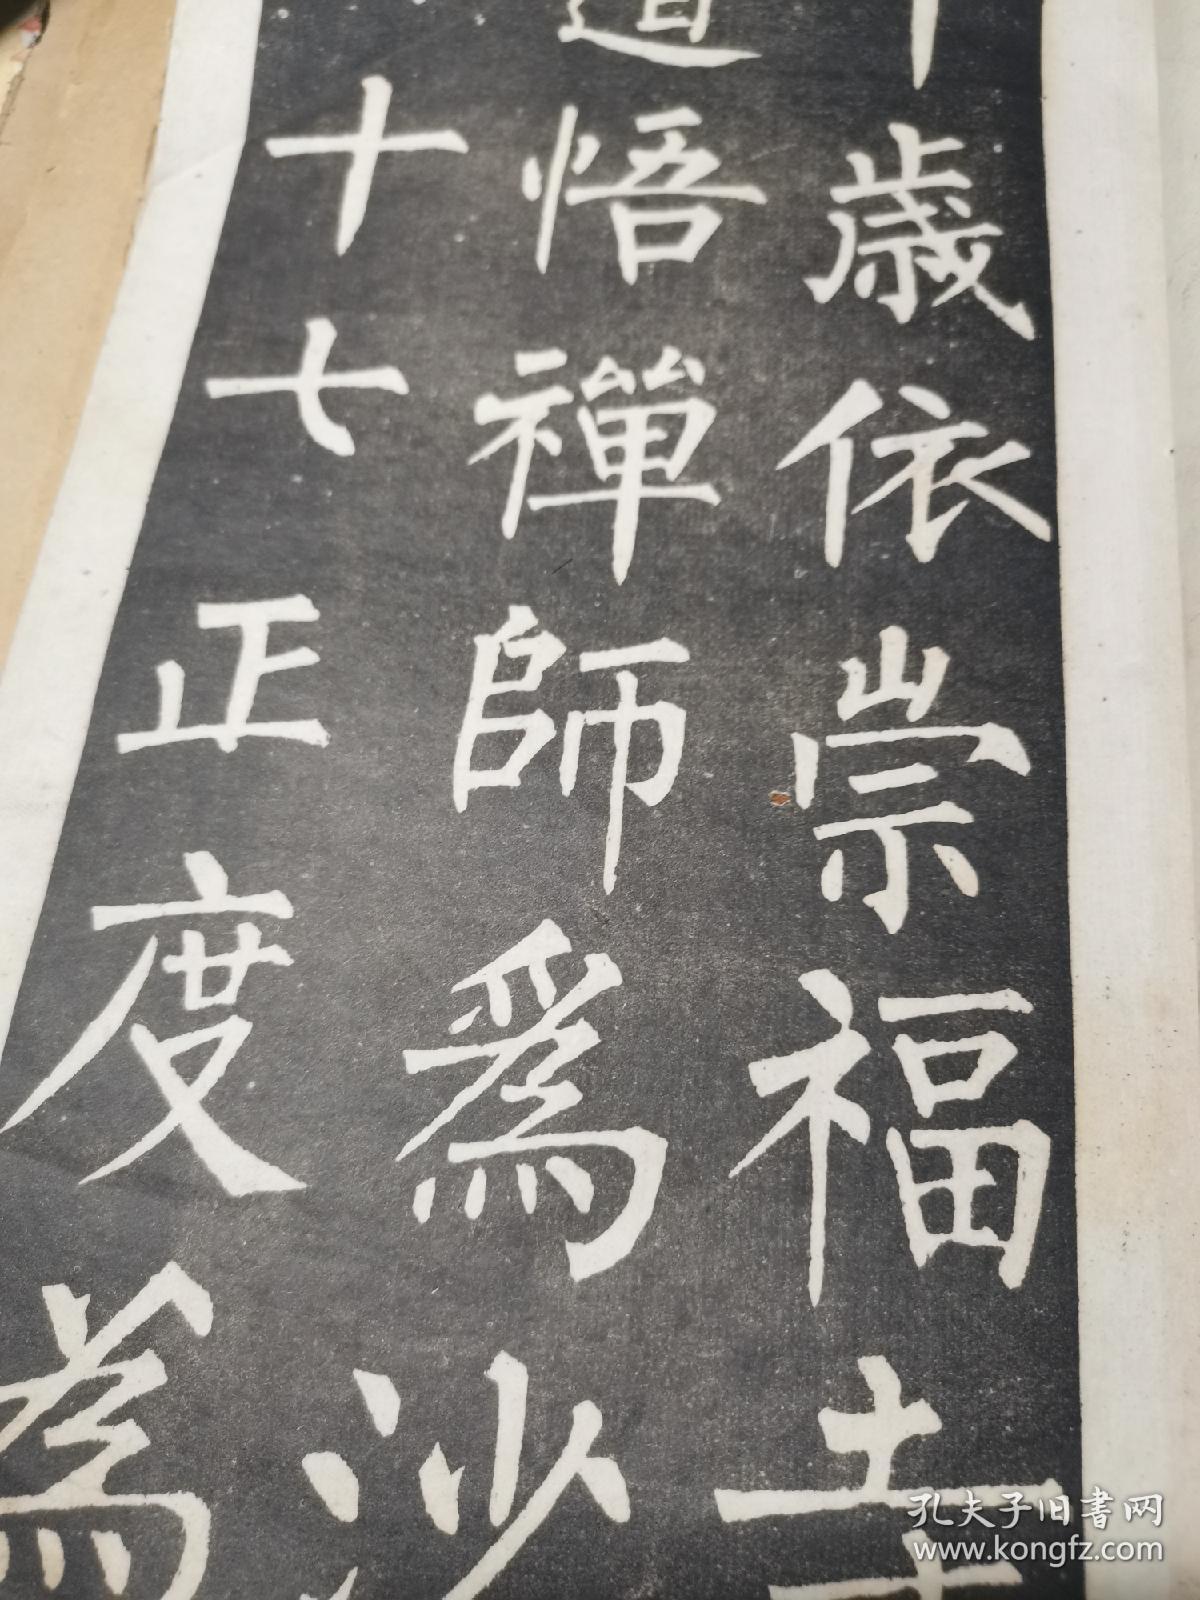 十歳依崇福寺
道悟禪師為沙
十七正度為
孔夫子旧書网
www.kongfz.com